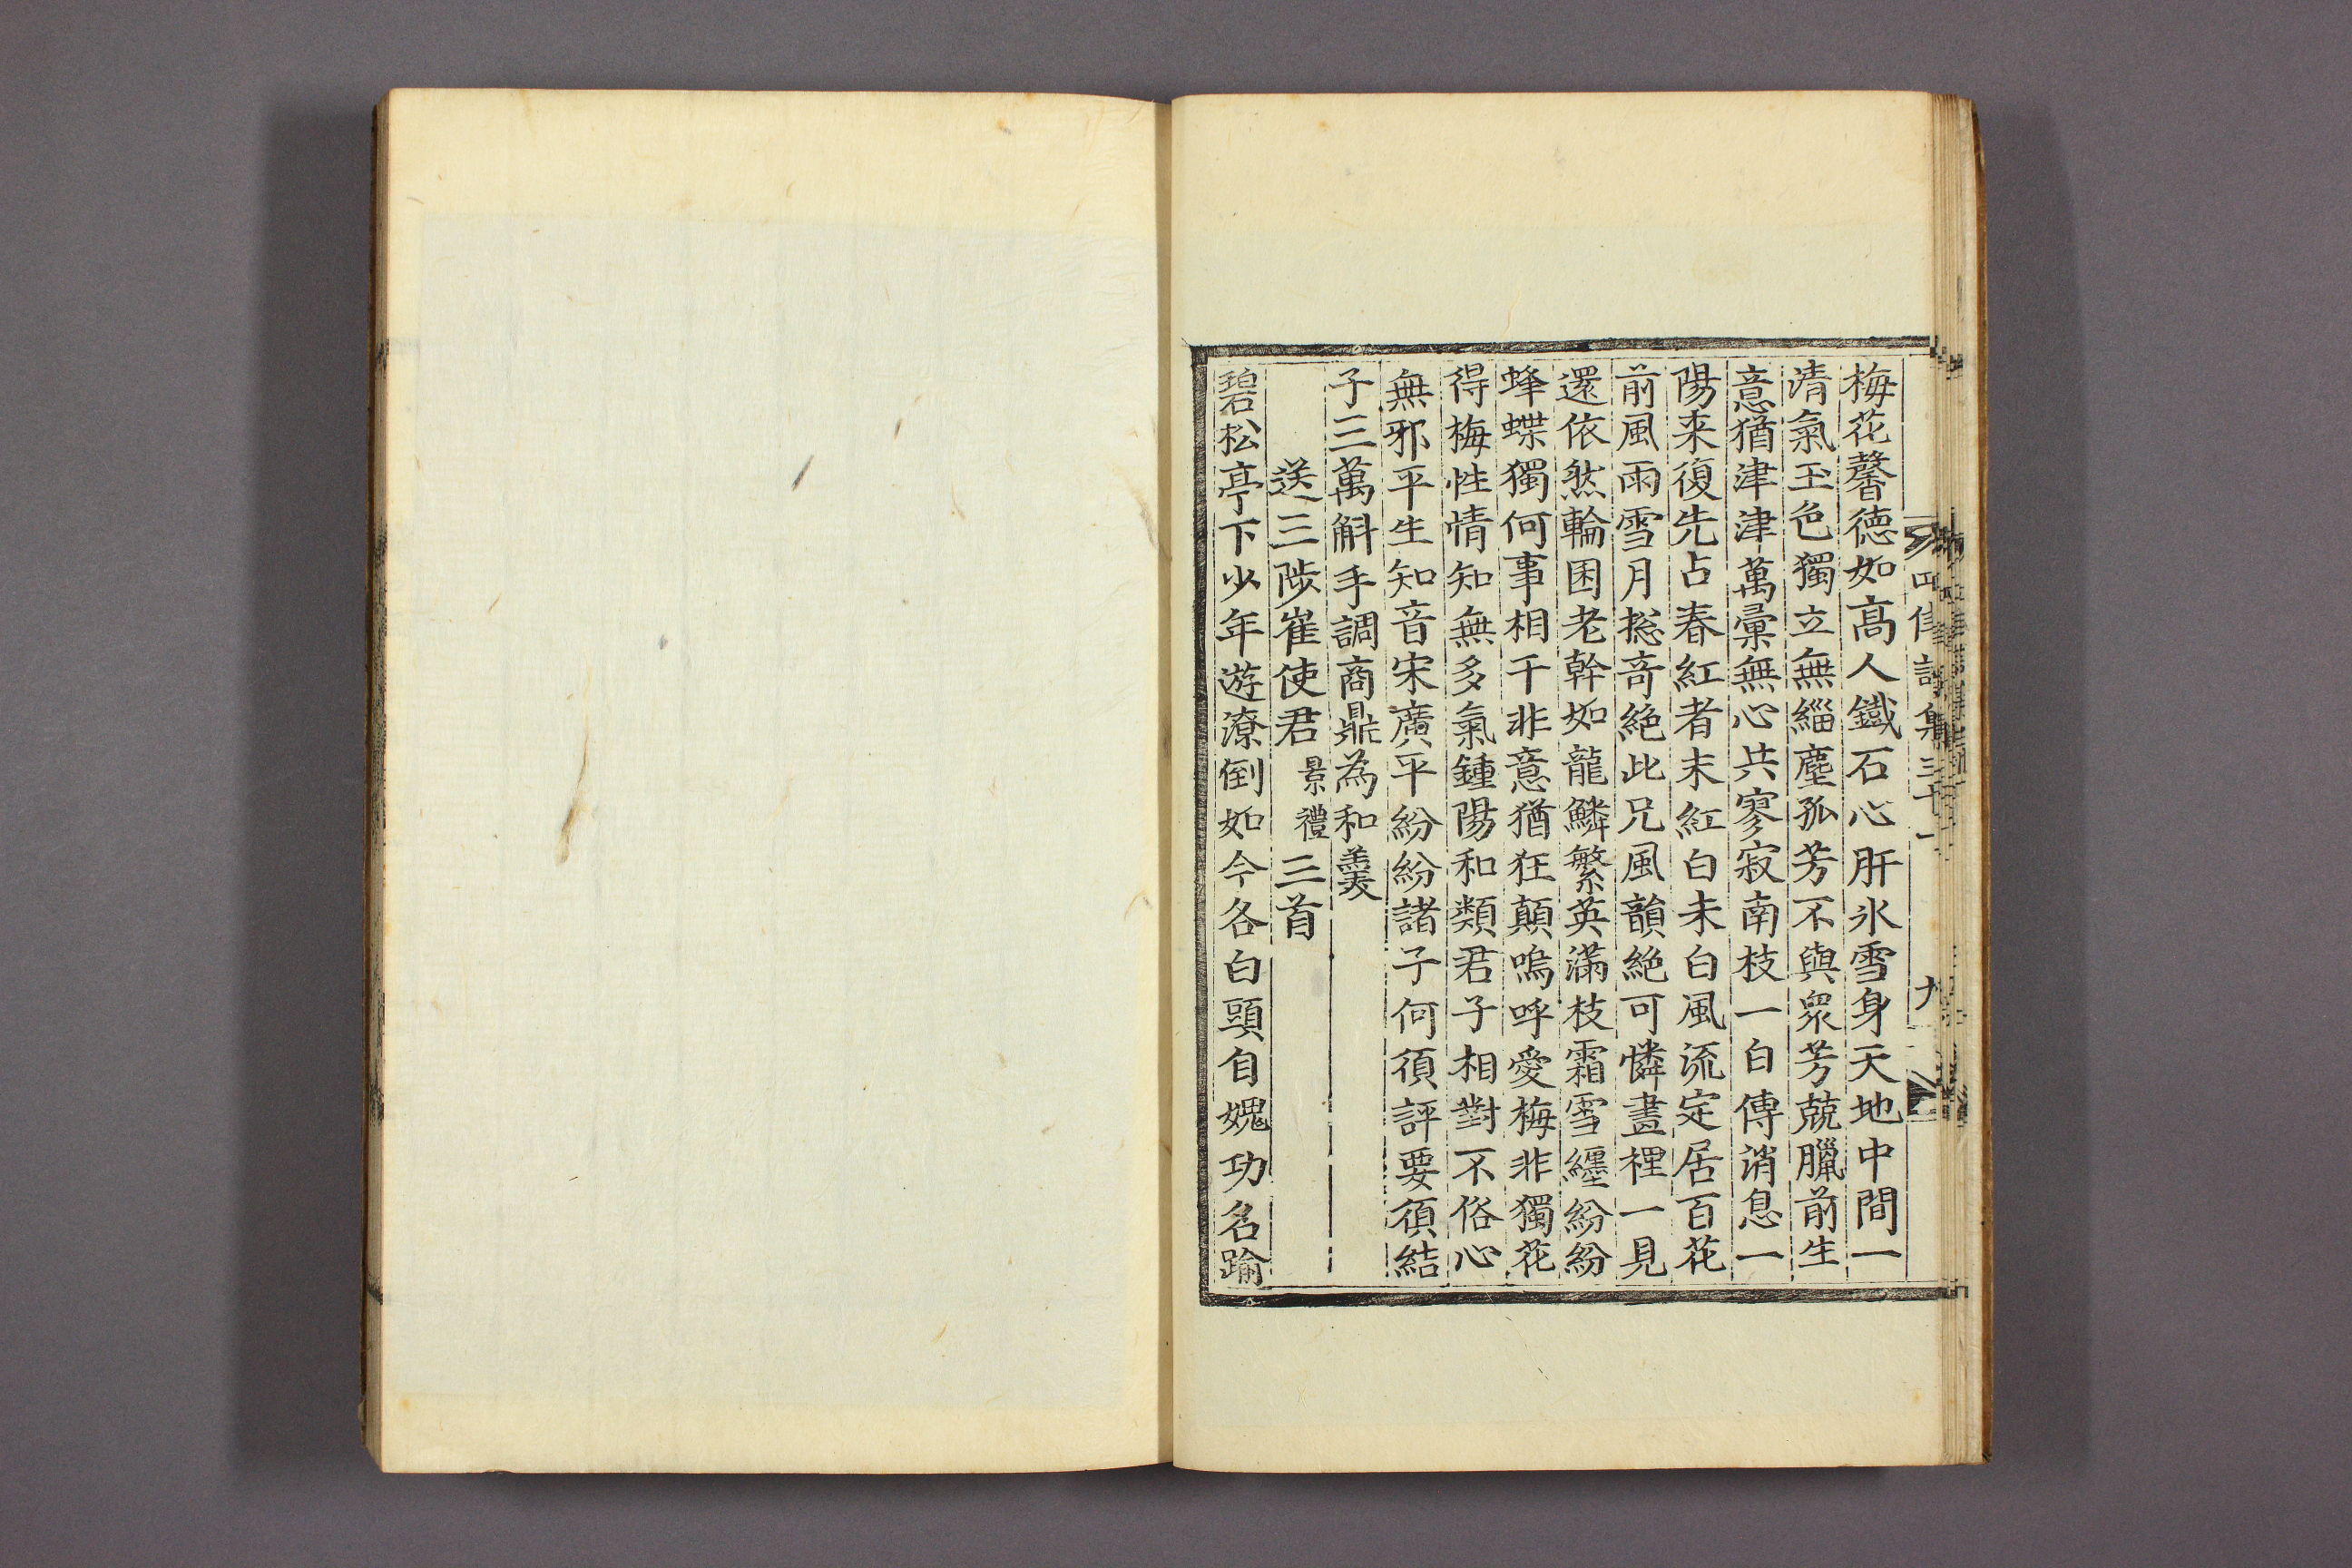 四佳詩集三十一 九
梅花馨德如高人鐵石心肝氷雪身天地中間一
清氣玉色獨立無緇塵孤芳不與衆芳兢臘前生
意猶津津萬彙無心共寥寂南枝一白傳消息一
陽来復先占春紅者末紅白未白風流定居百花
前風雨雪月揔奇絶此兄風韻絶可憐畫裡一見
還依然輪囷老幹如龍鱗繁英滿枝霜雪纒紛紛
蜂蝶獨何事相干非意猶狂顛嗚呼愛梅非獨花
得梅性情知無多氣鍾陽和類君子相對不俗心
無邪平生知音宋廣平紛紛諸子何湏評要湏結
子三萬斛手調商鼎為和羹
送三陟崔使君 景禮 三首
碧松亭下少年遊潦倒如今各白頭自媿功名踰